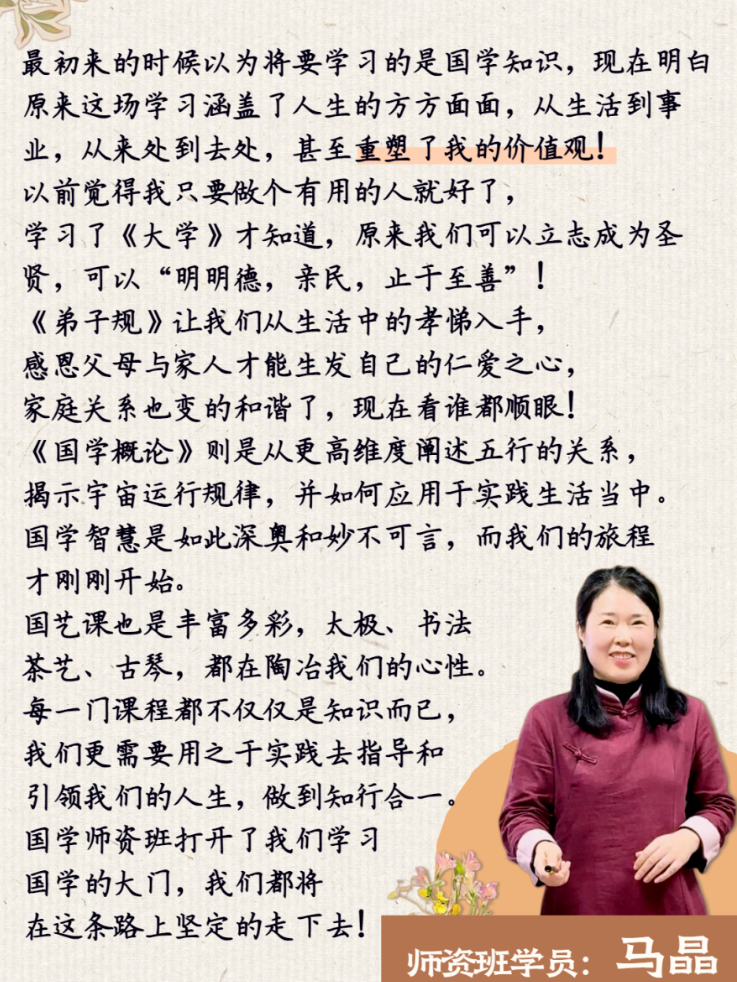 最初来的时候以为将要学习的是国学知识，现在明白
原来这场学习涵盖了人生的方方面面，从生活到事
业，从来处到去处，甚至重塑了我的价值观！
以前觉得我只要做个有用的人就好了，
学习了《大学》才知道，原来我们可以立志成为圣
贤，可以“明明德，亲民，止于至善”！
《弟子规》让我们从生活中的孝悌入手，
感恩父母与家人才能生发自己的仁爱之心，
家庭关系也变的和谐了，现在看谁都顺眼！
《国学概论》则是从更高维度阐述五行的关系，
揭示宇宙运行规律，并如何应用于实践生活当中。
国学智慧是如此深奥和妙不可言，而我们的旅程
才刚刚开始。
国艺课也是丰富多彩，太极、书法
茶艺、古琴，都在陶冶我们的心性。
每一门课程都不仅仅是知识而已，
我们更需要用之于实践去指导和
引领我们的人生，做到知行合一。
国学师资班打开了我们学习
国学的大门，我们都将
在这条路上坚定的走下去！
师资班学员：马晶